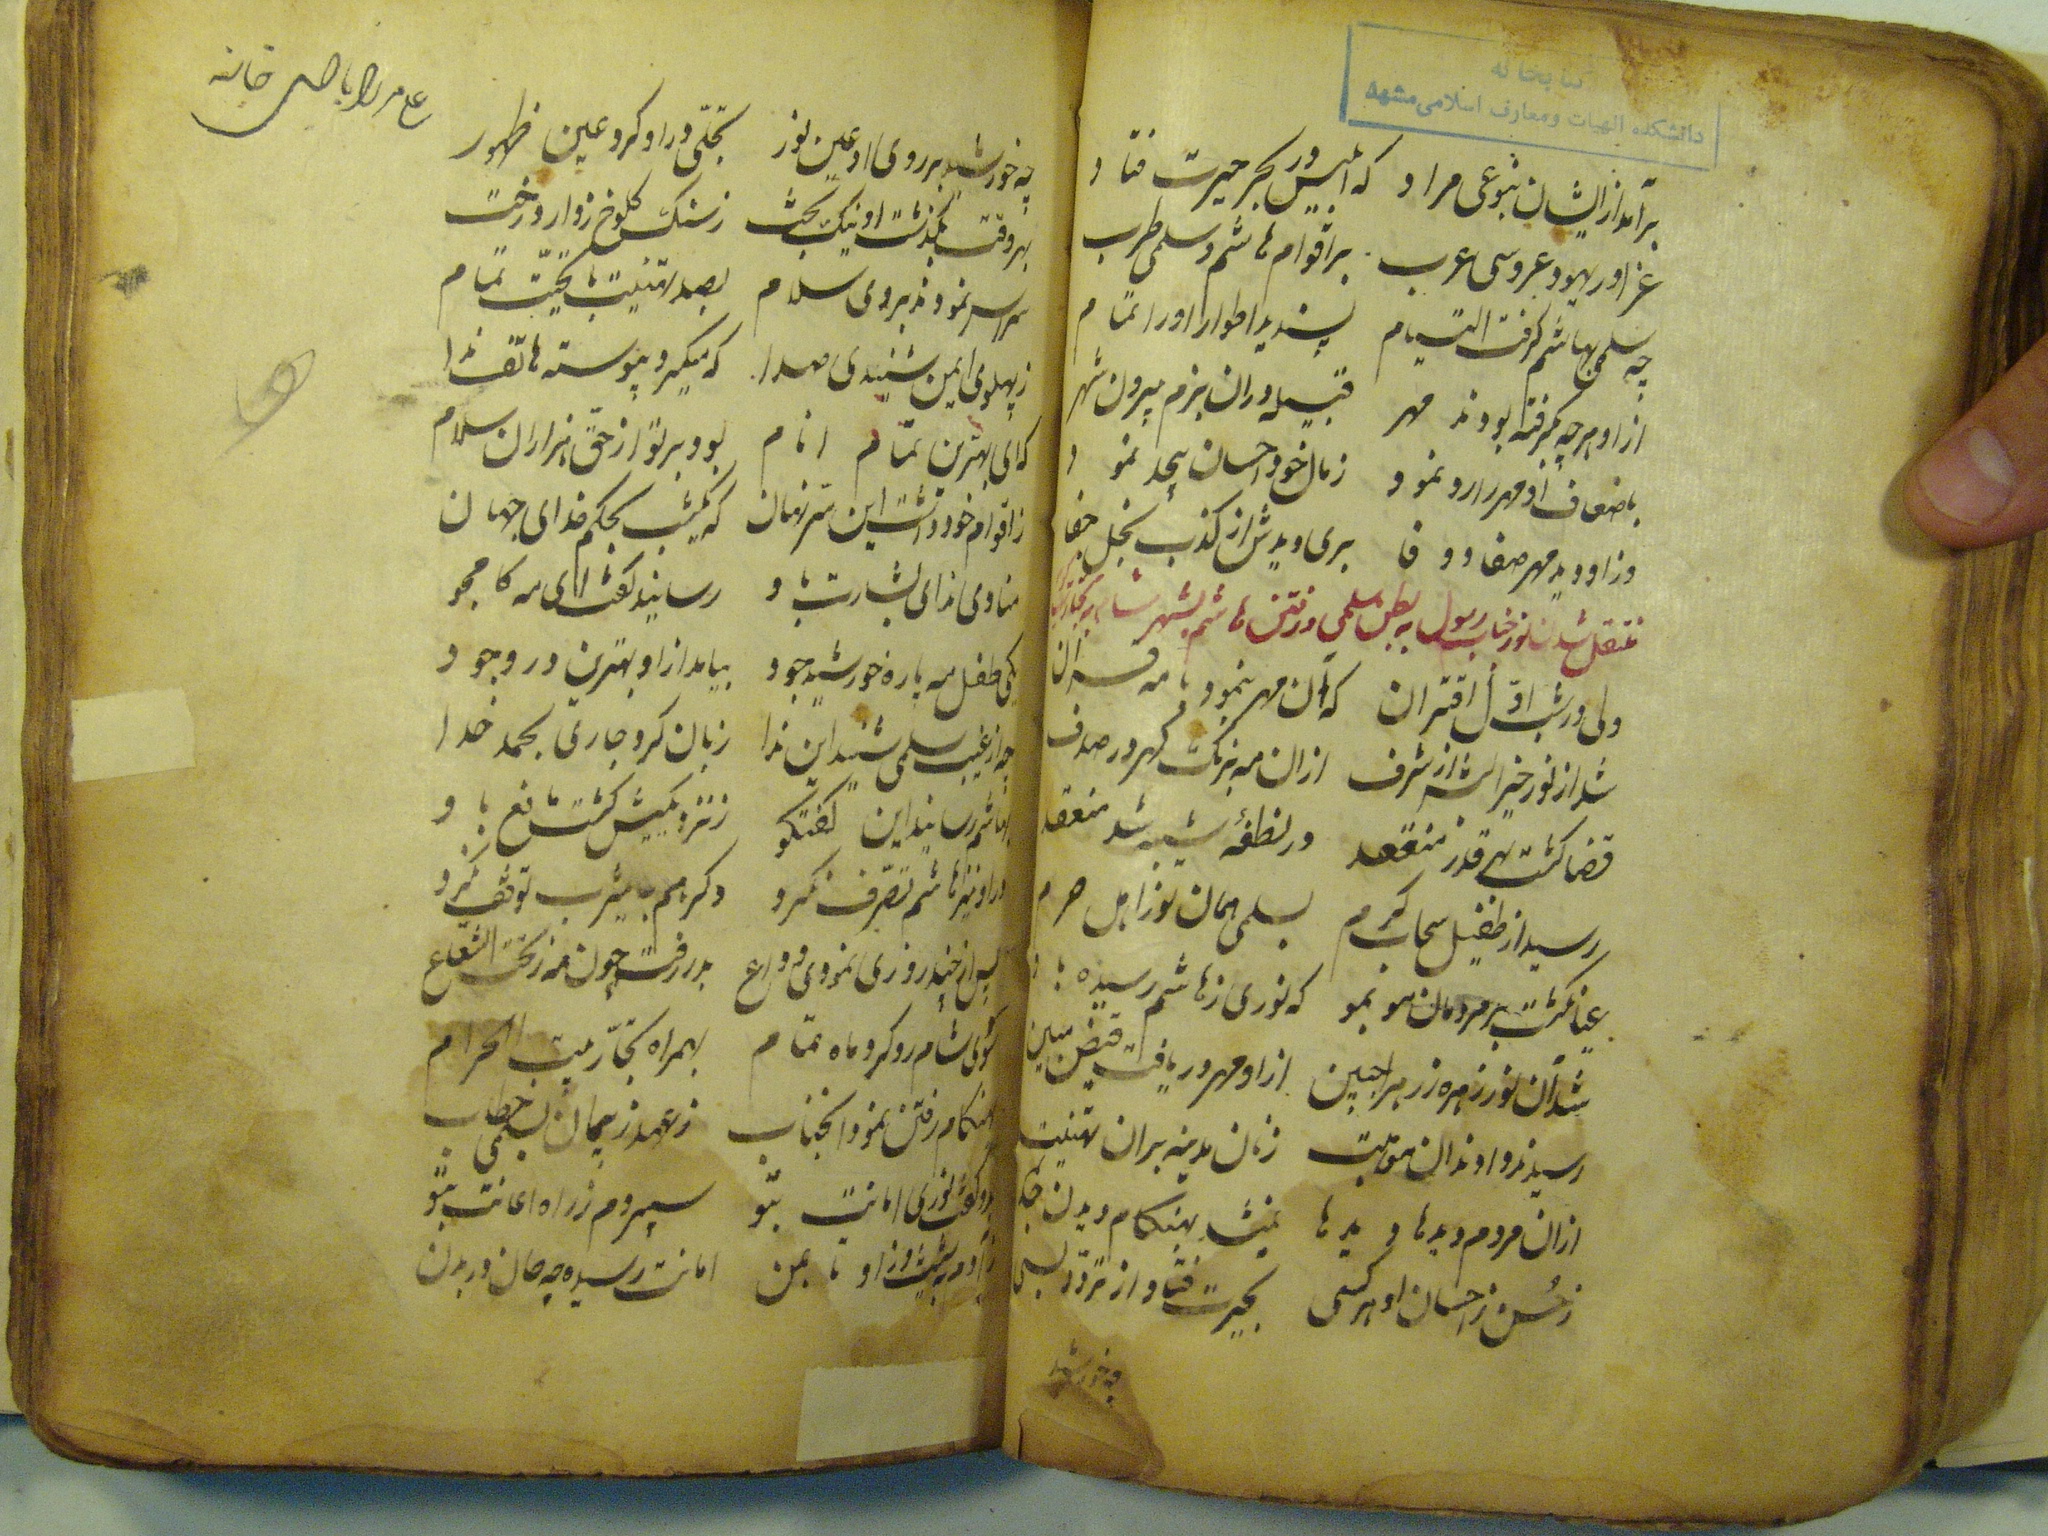 کتابخانه
دانشکده الهیات و معارف اسلامی مشهد
برآمد از ایشان بنوعی مراد که ابلیس در بحر حیرت فتاد
عزا در یهود و عروسی عرب بر اقوام هاشم و سلمی طرب
چه سلمی بهاشم گرفت التیام پسندید اطوار او را تمام
از او هرچه بگرفته بودند مهر قبیله در آن بزم بیرون شهر
باضعاف او مهر را رد نمود ز مال خود احسان بیحد نمود
وز او دید مهر صفا و وفا بری دیدش از کذب بخل جفا
منتقل شدن نور جناب رسول به بطن سلمی و رفتن هاشم بشهر شام
ولی در شب اول اقتران که آن مهر بنمود با مه قران
شد از نور خیر البشر از شرف از آن مه بزنک گهر در صدف
قضا گشت بهر قدر منعقد در نطفه شیبه شد منعقد
رسید از طفیل سحاب کرم بسلمی همان نور اهل حرم
عیان گشت بر مردمان مو بمو که نوری ز هاشم رسیده باو
شد آن نور زهره ز زهرا جبین از او مهر دریافت فیض مبین
رسیدند و دادند آن منقبت زنان مدینه بر آن تهنیت
از آن مردم دیدها و دیدها بهنگام دیدن
ز حسن ز احسان او هر کسی بحیرت فتاد از تردد بسی
چه خورشید
چه خورشید بر روی او عین نور تجلی در او کرد عین ظهور
بهر وقت بگذشت او نیک بخت ز سنک کلوخ ز دار و درخت
سراسر نمودند بر وی سلام بصد تهنیت با تحیت تمام
ز پهلوی ایمن شنیدی صدا که میکرد پیوسته هاتف ندا
که ای بهترین تمام انام بود بر تو از حق هزاران سلام
ز اقوام خود داشت این سر نهان که یکشب بحکم خدای جهان
منادی ندای بشارت باو رسانید گفت ای مه کامجو
یکی طفل مه پاره خورشید جود بیاید از او بهترین در وجود
چه از غیب سلمی شنید این ندا زبان کرد جاری بحمد خدا
بهاشم رسانید این گفتگو ز نزدیکیش گشت مانع باو
در او نیز هاشم تصرف نکرد دگر هم به یثرب توقف نکرد
پس از چند روزی نمودی وداع بدر رفت چون مه ز تحت الشعاع
بسوی شام رو کرد ماه تمام بهمراه تجار بیت الحرام
بهنگام رفتن نمود آنجناب ز عهد ز پیمان بسلمی خطاب
بدو گفت نوری امانت بتو سپردم ز راه اعانت بتو
ز آدم به شیث وز او تا بمن امانت رسیده چه جان در بدن